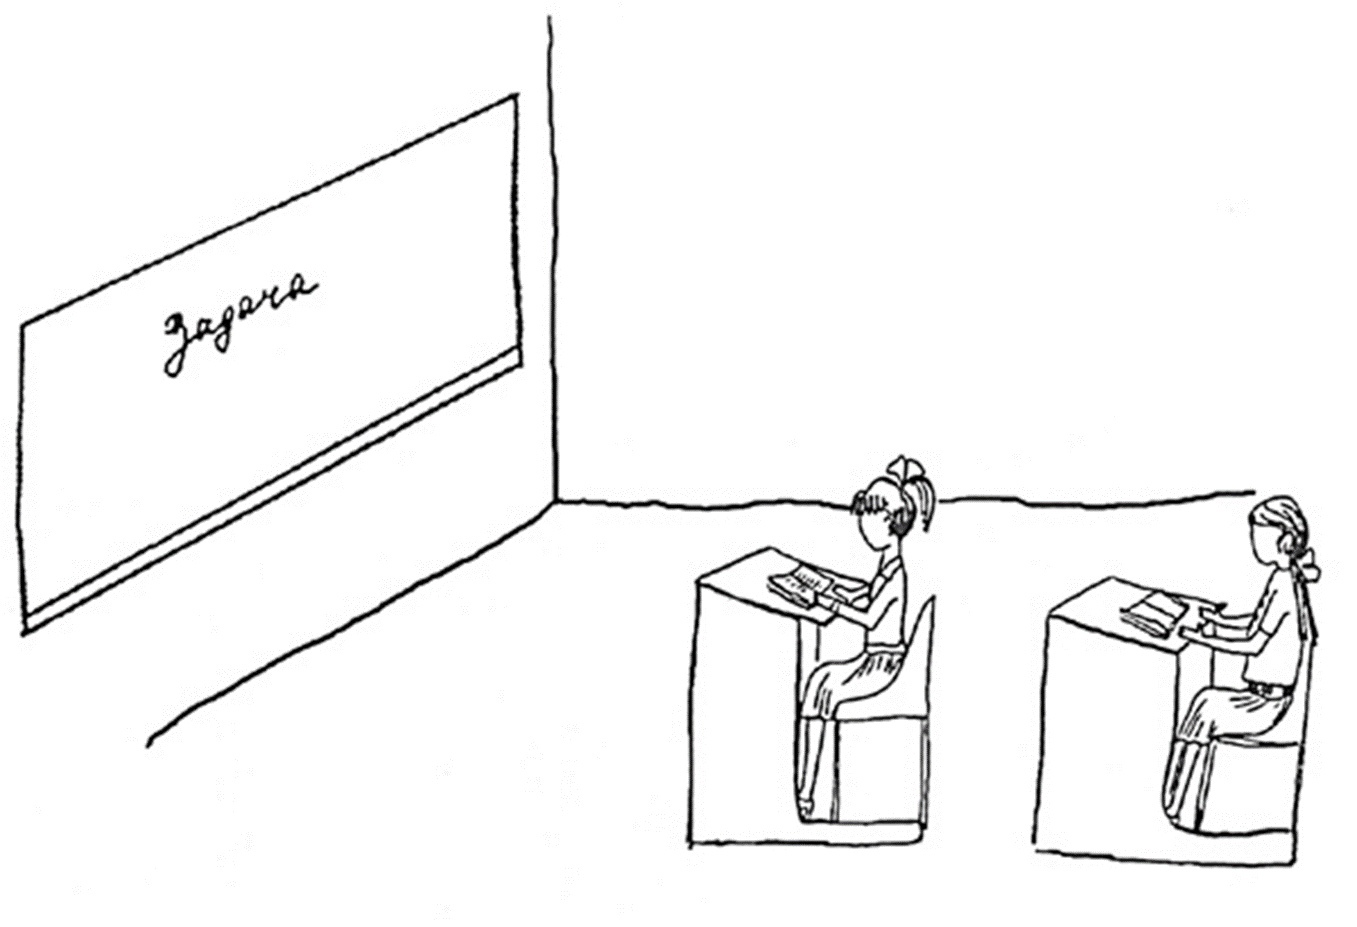 Задача